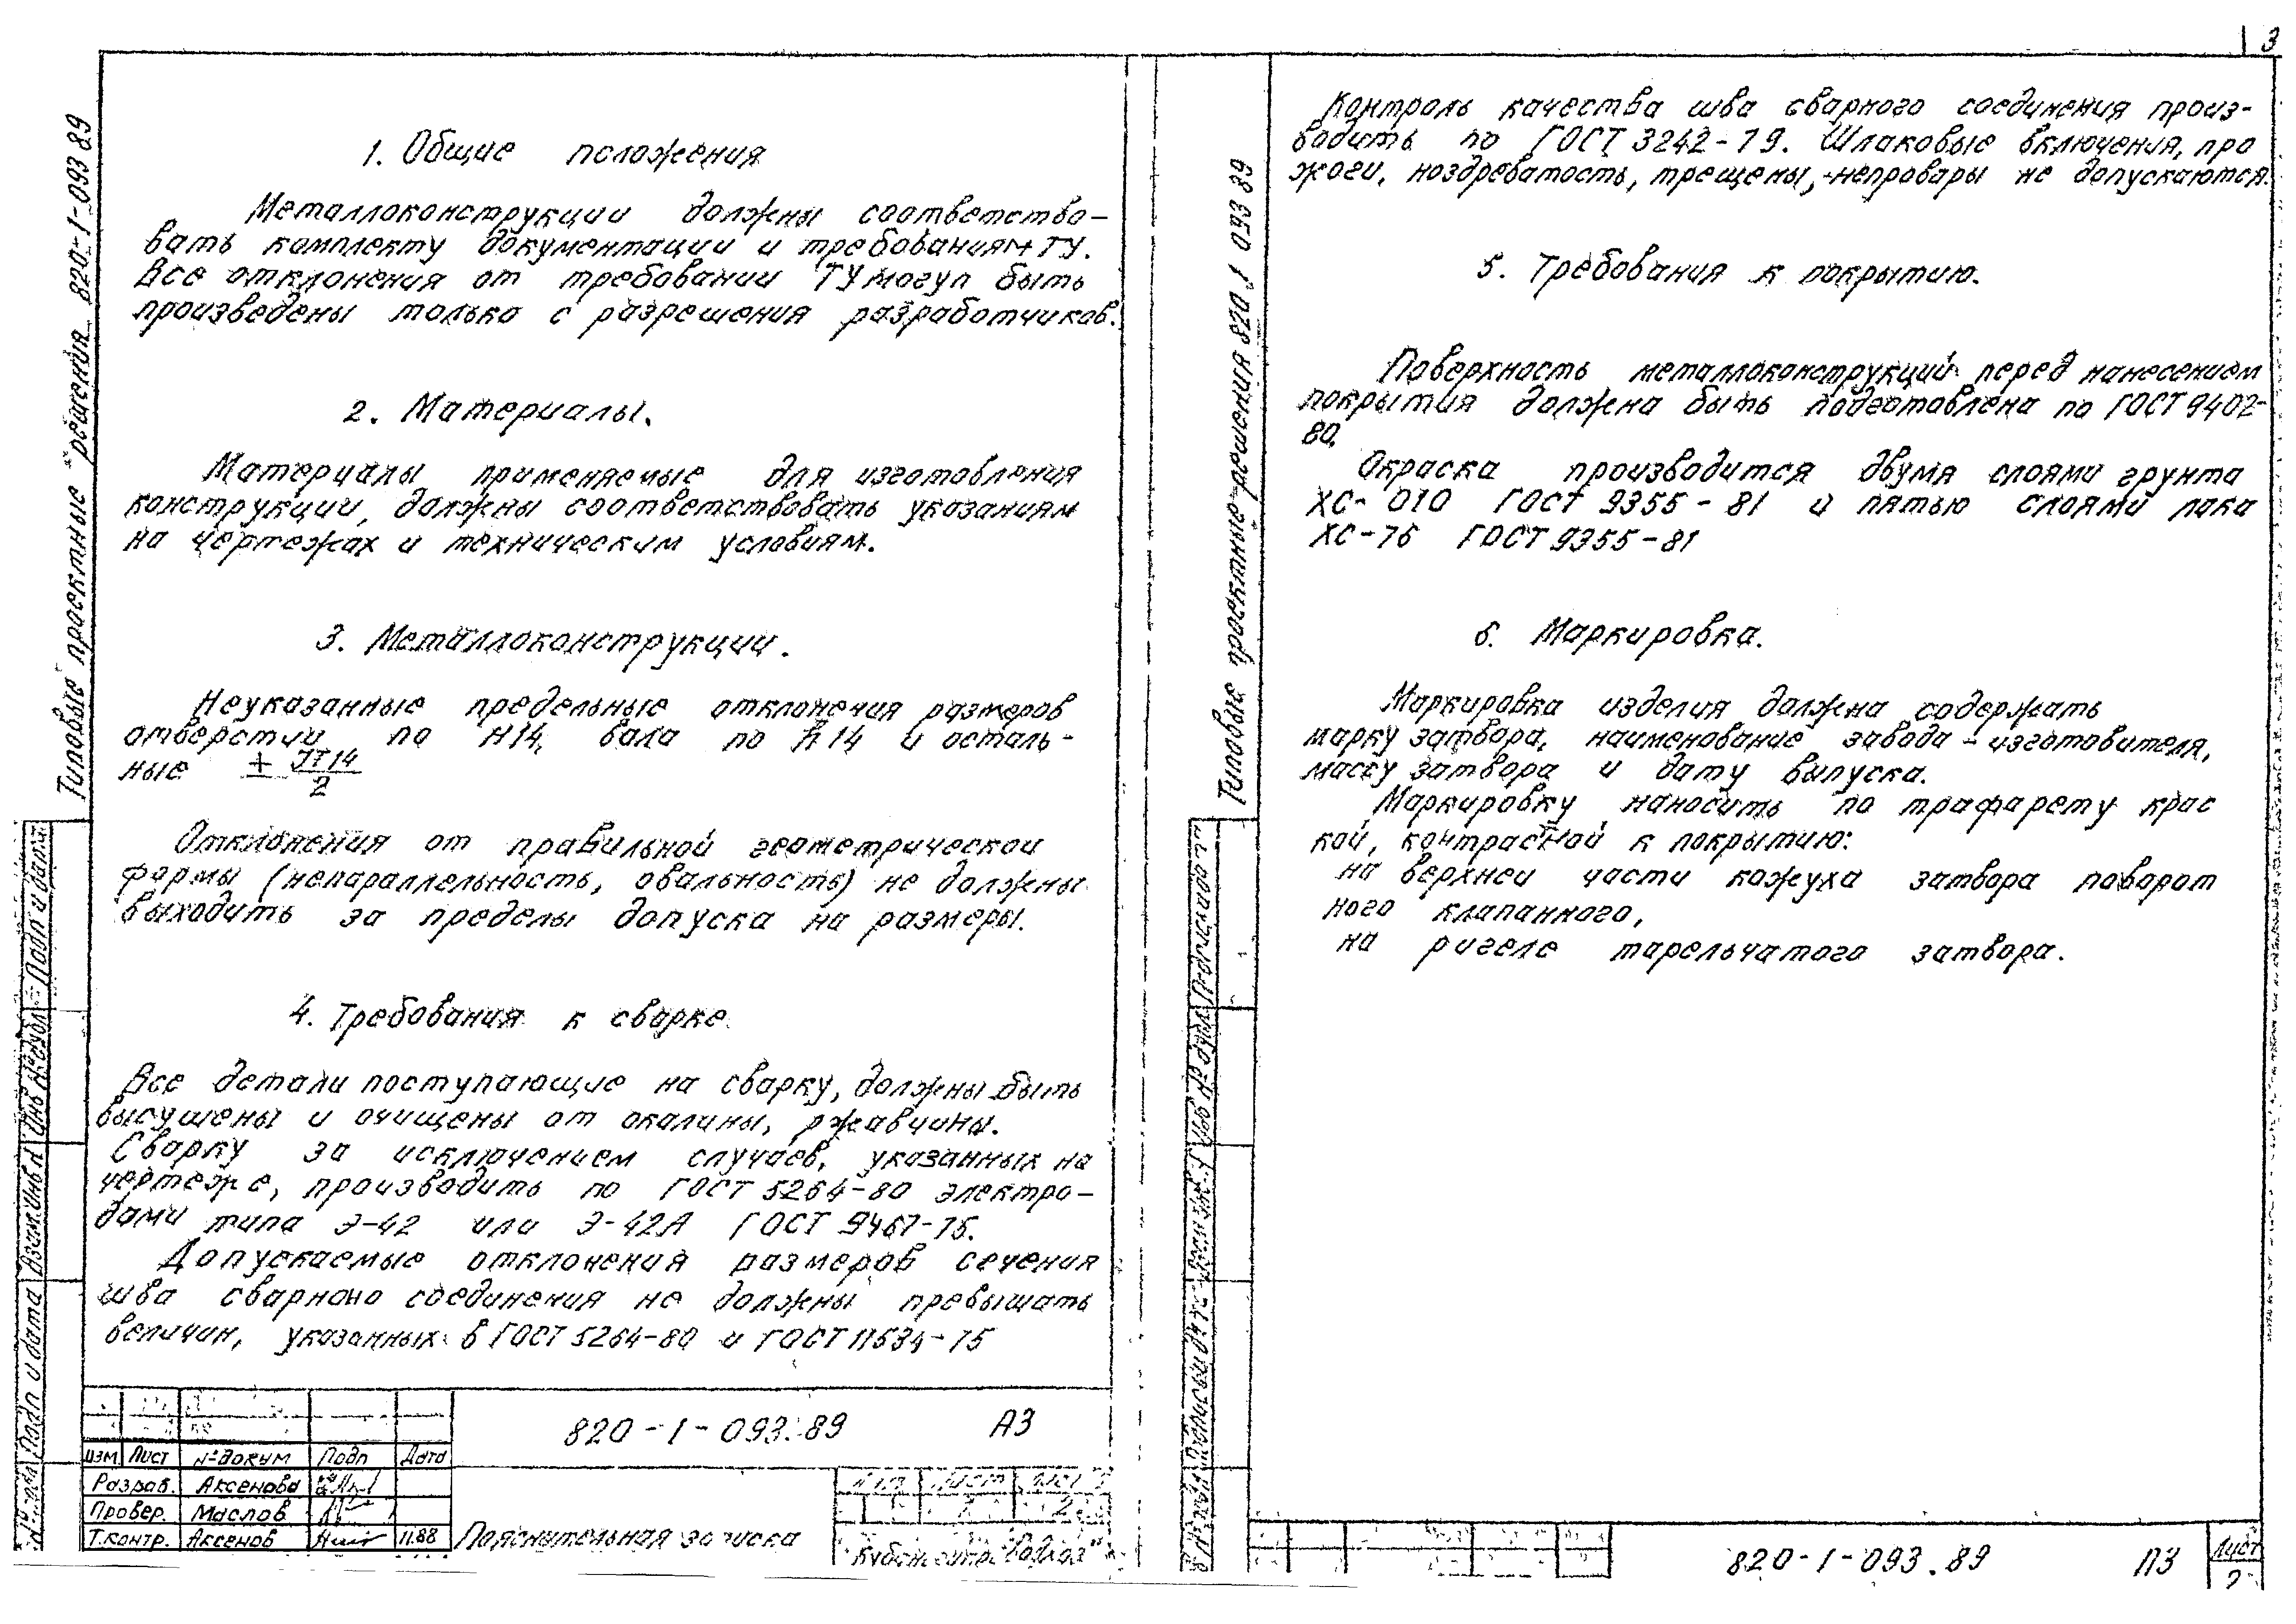 3
Типовые проектные решения 820-1-093 89
1. Общие положения
Металлоконструкции должны соответство-
вать комплекту документации и требованиям ТУ.
Все отклонения от требовании ТУ могут быть
произведены только с разрешения разработчиков.
2. Материалы.
Материалы применяемые для изготовления
конструкции, должны соответствовать указаниям
на чертежах и техническим условиям.
3. Металлоконструкции.
Неуказанные предельные отклонения размеров
отверстии по H14, вала по h14 и осталь-
ные ± IT14/2
Отклонения от правильной геометрической
формы (непараллельность, овальность) не должны
выходить за пределы допуска на размеры.
4. Требования к сварке
Все детали поступающие на сварку, должны быть
высушены и очищены от окалины, ржавчины.
Сварку за исключением случаев, указанных на
чертеже, производить по ГОСТ 5264-80 электро-
дами типа Э-42 или Э-42А ГОСТ 9467-75.
Допускаемые отклонения размеров сечения
шва сварного соединения не должны превышать
величин, указанных в ГОСТ 5264-80 и ГОСТ 11534-75
820-1-093.89 АЗ
Изм. Лист № докум Подп Дата
Разраб. Аксенова
Провер. Маслов
Т.контр. Аксенов 11.88
Пояснительная записка
Подп и дата
Инв № дубл
Взам инв №
Подп и дата
Типовые проектные решения 820 1 093 89
Контроль качества шва сварного соединения произ-
водить по ГОСТ 3242-79. Шлаковые включения, про
жоги, ноздреватость, трещены, непровары не допускаются.
5. Требования к покрытию.
Поверхность металлоконструкций перед нанесением
покрытия должна быть подготовлена по ГОСТ 9402-
80.
Окраска производится двумя слоями грунта
ХС-010 ГОСТ 9355-81 и пятью слоями лака
ХС-76 ГОСТ 9355-81
6. Маркировка.
Маркировка изделия должна содержать
марку затвора, наименование завода-изготовителя,
массу затвора и дату выпуска.
Маркировку наносить по трафарету крас
кой, контрастной к покрытию:
на верхней части кожуха затвора поворот
ного клапанного,
на ригеле тарельчатого затвора.
820-1-093.89 ПЗ
Лист
2